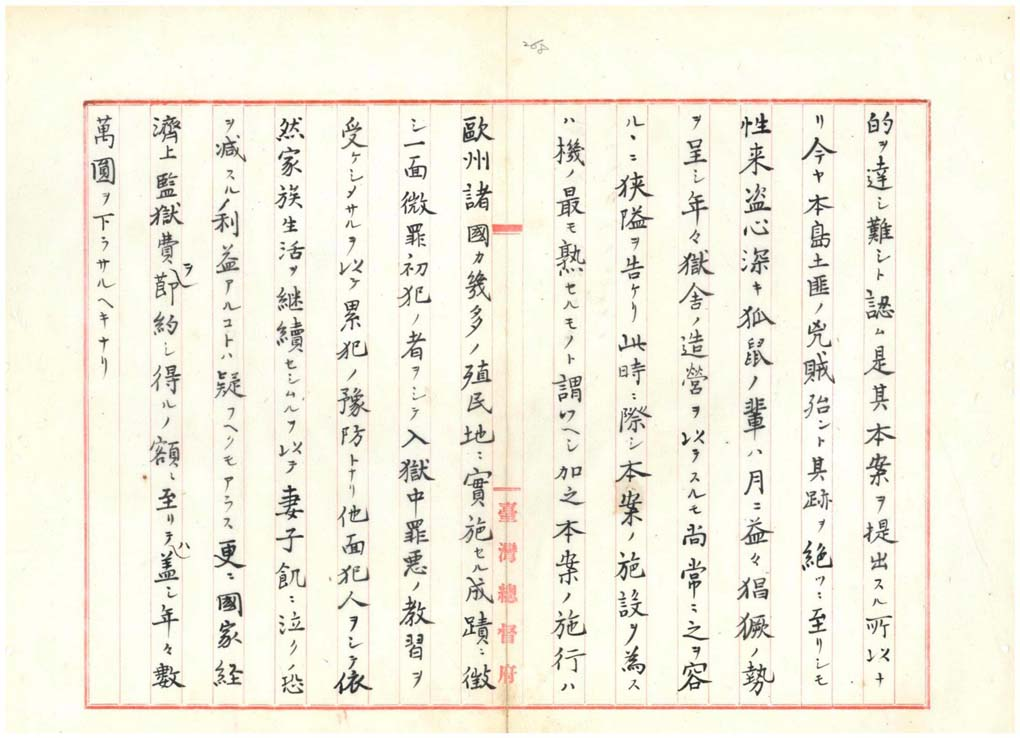 的ヲ達シ難シト認ム是其本案ヲ提出スル所以ナ
リ今ヤ本島土匪ノ兇賊殆ント其跡ヲ絶ツニ至リシモ
性来盗心深キ狐鼠ノ輩ハ月ニ益々猖獗ノ勢
ヲ呈シ年々獄舎ノ造營ヲ以テスルモ尚常ニ之ヲ容
ルヽニ狭隘ヲ告ケリ此時ニ際シ本案ノ施設ヲ為ス
ハ機ノ最モ熟セルモノト謂ツヘシ加之本案ノ施行ハ
臺灣總督府
歐州諸國カ幾多ノ殖民地ニ實施セル成蹟ニ徴
シ一面微罪初犯ノ者ヲシテ入獄中罪悪ノ教習ヲ
受ケシメサルヲ以テ累犯ノ豫防トナリ他面犯人ヲシテ依
然家族生活ヲ継續セシムルヲ以テ妻子飢ニ泣クノ恐
ヲ減スルノ利益アルコトハ疑フヘクモアラス更ニ國家経
濟上監獄費ヲ節約シ得ルノ額ニ至リテハ盖シ年々數
萬圓ヲ下ラサルヘキナリ